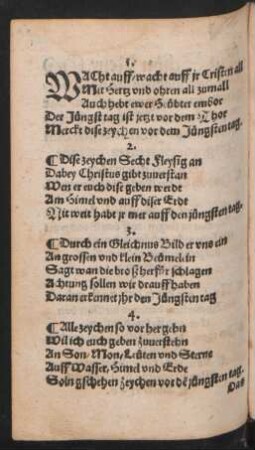 1.
WAcht auff/wacht auff jr Cristen all
Mit Hertz vnd ohren all zumall
Auch hebt ewer Heübter embor
Der Jüngst tag ist jetzt vor dem Thor
Merckt dise zeychen vor dem Jüngsten tag.
2.
¶Dise zeychen Secht Fleysig an
Dabey Christus gibt zuuerstan
Wen er euch dise geben werde
Am Himel vnd auff diser Erdt
Nit weit habt jr mer auff den jüngsten tag.
3.
¶Durch ein Gleichnus Bild er vns ein
An grossen vnd klein Beümelein
Sagt wan die broß herfür schlagen
Achtung sollen wir drauff haben
Daran erkennet jhr den Jüngsten tag
4.
¶Alle zeychen so vor her gehn
Wil ich euch geben zuuerstehn
An Son/Mon/Leüten vnd Sterne
Auff Wasser/Himel vnd Erde
Soln gschehen zeychen vor dē jüngsten tag.
Das